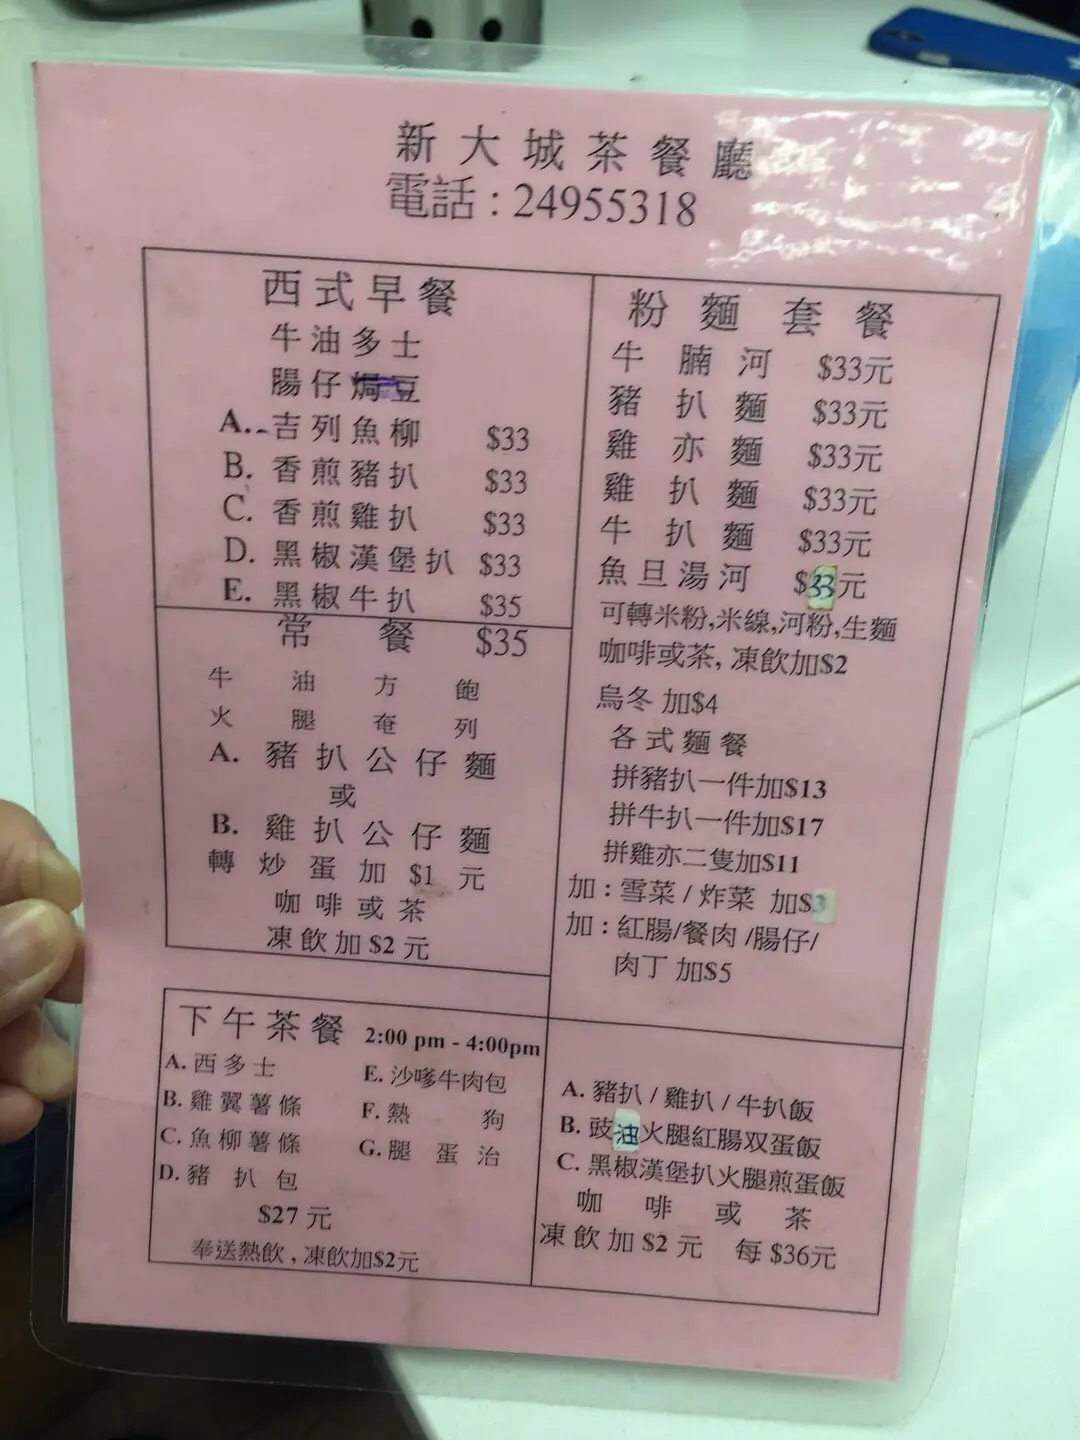 新大城茶餐廳
電話 : 24955318
西式早餐
牛油多士
腸仔焗豆
A. 吉列魚柳 $33
B. 香煎豬扒 $33
C. 香煎雞扒 $33
D. 黑椒漢堡扒 $33
E. 黑椒牛扒 $35
常餐 $35
牛油方飽
火腿奄列
A. 豬扒公仔麵
或
B. 雞扒公仔麵
轉炒蛋加 $1 元
咖啡或茶
凍飲加 $2 元
粉麵套餐
牛腩河 $33元
豬扒麵 $33元
雞亦麵 $33元
雞扒麵 $33元
牛扒麵 $33元
魚旦湯河 $33元
可轉米粉,米線,河粉,生麵
咖啡或茶, 凍飲加$2
烏冬 加$4
各式麵餐
拼豬扒一件加$13
拼牛扒一件加$17
拼雞亦二隻加$11
加 : 雪菜 / 炸菜 加$3
加 : 紅腸/餐肉 /腸仔/
肉丁 加$5
下午茶餐 2:00 pm - 4:00pm
A. 西多士
B. 雞翼薯條
C. 魚柳薯條
D. 豬扒包
E. 沙嗲牛肉包
F. 熱狗
G. 腿蛋治
$27 元
奉送熱飲 , 凍飲加$2元
A. 豬扒 / 雞扒 / 牛扒飯
B. 豉油火腿紅腸双蛋飯
C. 黑椒漢堡扒火腿煎蛋飯
咖啡或茶
凍飲加 $2 元 每 $36元